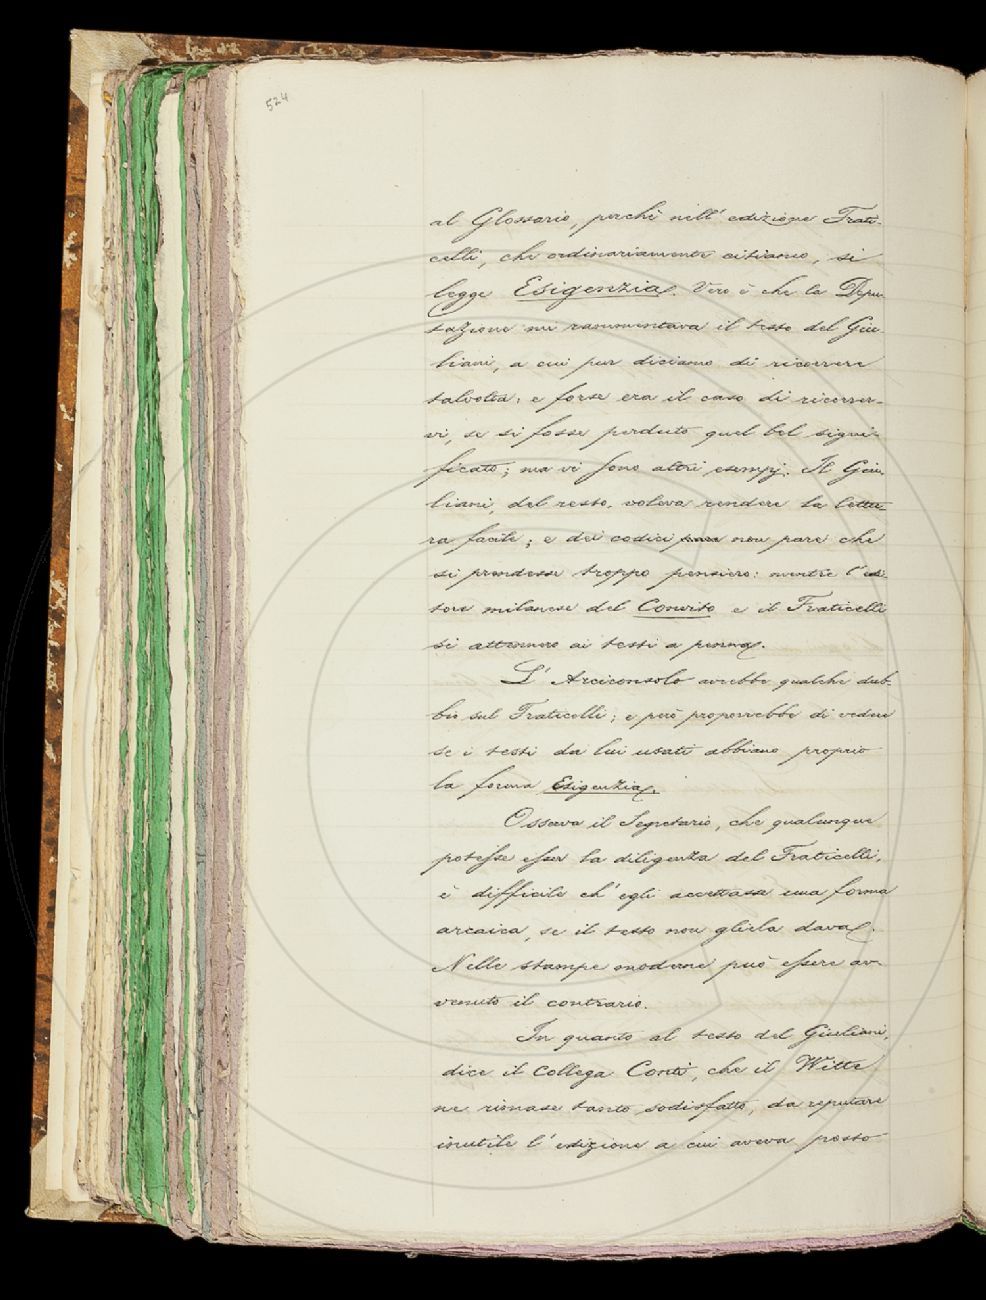 524
al Glossario, perchè nell' edizione Frati-
celli, che ordinariamente citiamo, si
legge Esigenzia. Vero è che la Depu-
tazione mi rammentava il testo del Giu-
liani, a cui pur diciamo di ricorrere
talvolta; e forse era il caso di ricorrer-
vi, se si fosse perduto quel bel signi-
ficato; ma vi sono altri esempj. Il Giu-
liani, del resto, voleva rendere la lettu-
ra facile; e dei codici non pare che
si prendesse troppo pensiero: mentre l'edi-
tore milanese del Convito e il Fraticelli
si attennero ai testi a penna.
L' Arciconsolo avrebbe qualche dub-
bio sul Fraticelli; e però proporrebbe di vedere
se i testi da lui usati abbiano proprio
la forma Esigenzia.
Osserva il Segretario, che qualunque
potesse esser la diligenza del Fraticelli,
è difficile ch' egli accettasse una forma
arcaica, se il testo non gliela dava.
Nelle stampe moderne può essere av-
venuto il contrario.
In quanto al testo del Giuliani,
dice il Collega Conti, che il Witte
ne rimase tanto sodisfatto, da reputare
inutile l' edizione a cui aveva posto